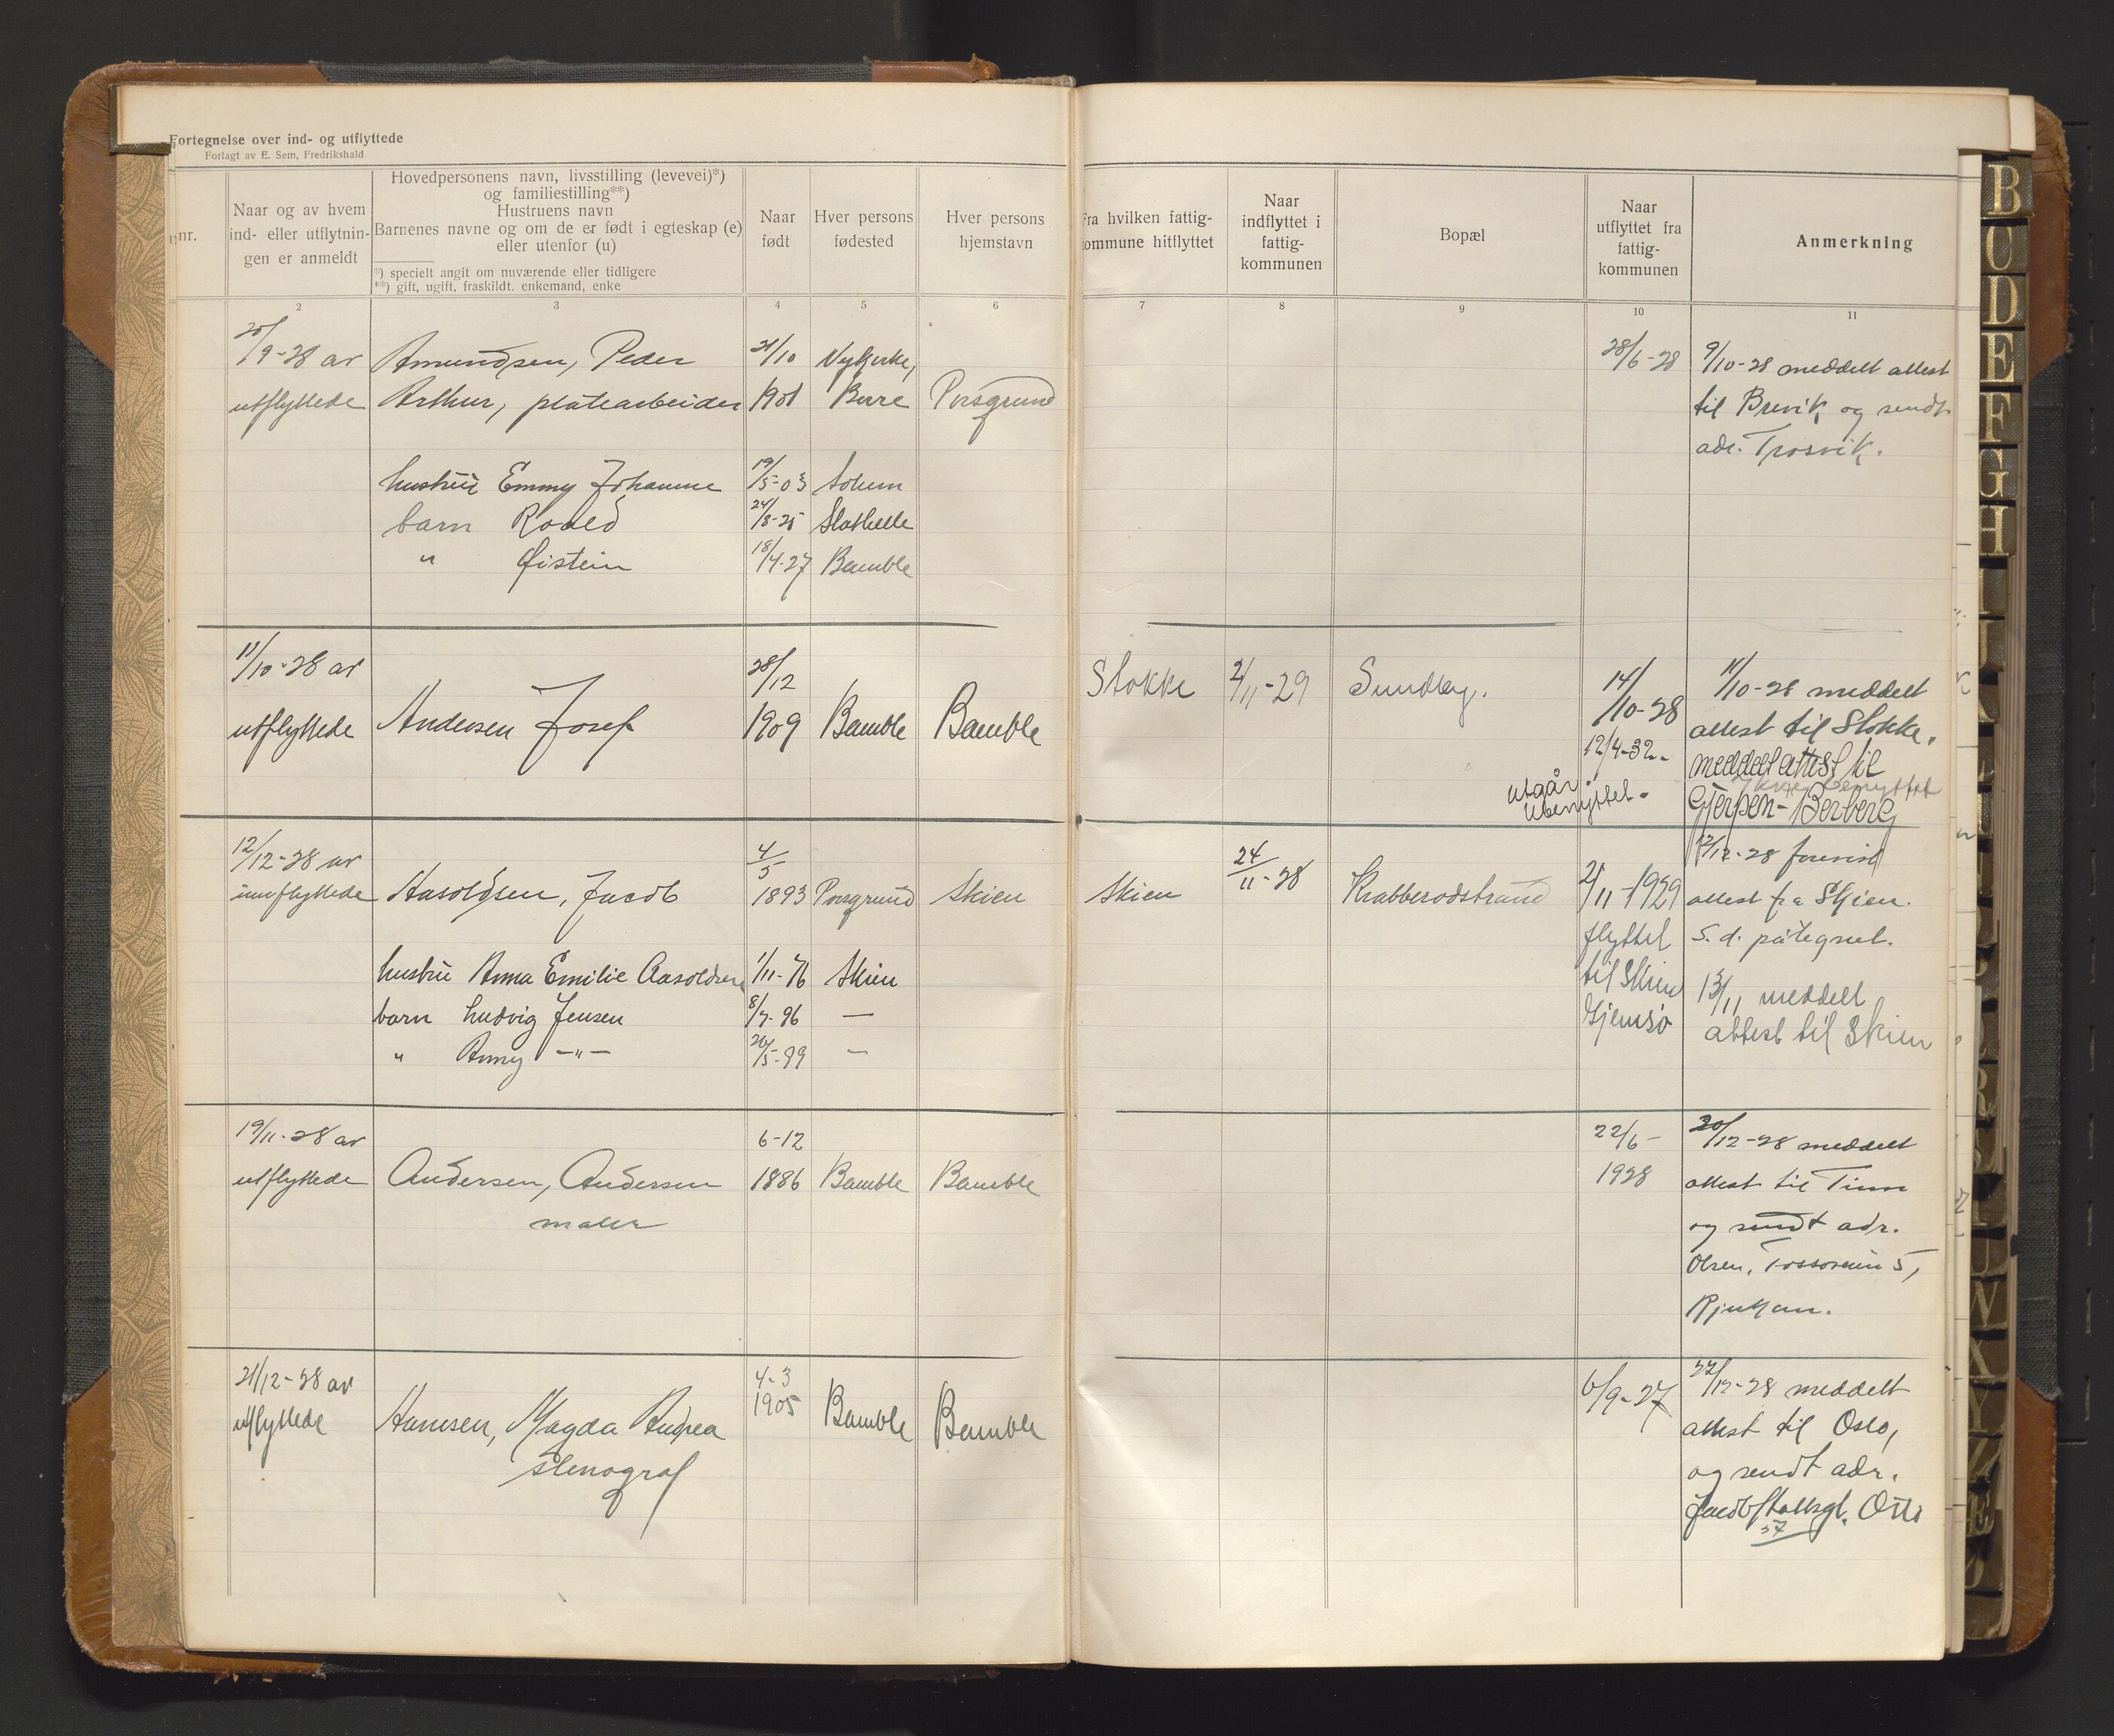 Fortegnelse over ind- og utflyttede
Forlagt av E. Sem, Fredrikshald
nr.
Naar og av hvem
ind- eller utflytnin-
gen er anmeldt
Hovedpersonens navn, livsstilling (levevei)*)
og familiestilling**)
Hustruens navn
Barnenes navne og om de er født i egteskap (e)
eller utenfor (u)
*) specielt angit om nuværende eller tidligere
**) gift, ugift, fraskildt. enkemand, enke
Naar
født
Hver persons
fødested
Hver persons
hjemstavn
Fra hvilken fattig-
kommune hitflyttet
Naar
indflyttet i
fattig-
kommunen
Bopæl
Naar
utflyttet fra
fattig-
kommunen
Anmerkning
2 3 4 5 6 7 8 9 10 11
20/9-28 av
utflyttede
Amundsen, Peder
Arthur, platearbeider
21/10
1901
Nykirke,
Borre
Porsgrund
28/6-28
9/10-28 meddelt attest
til Brevik og sendt
adr. Trosvik.
hustru Emmy Johanne 19/5-03 Solum
barn Roald 24/8-25 Stathelle
" Øistein 18/4-27 Bamble
11/10-28 av
utflyttede
Andersen Josef
28/12
1909
Bamble
Bamble
Stokke
2/11-29
Sundby.
14/10-28
12/4-32.-
utgår
Ubenyttet-
11/10-28 meddelt
attest til Stokke.
meddelt attest til
benyttet
Gjerpen-Borberg
12/12-28 av
innflyttede
Aasoldsen, Jacob
4/5
1893
Porsgrund
Skien
Skien
24/11-28
Krabberødstrand
2/11-1929
flyttet
til Skien
Gjemsø
12/12-28 forevist
attest fra Skien.
S. d. påtegnet.
13/11 meddelt
attest til Skien
hustru Anna Emilie Aasoldsen 1/11-76 Skien
barn Ludvig Jensen 8/7-96 —
" Anny -"- 20/5-99 —
19/11-28 av
utflyttede
Andersen, Andersen
maler
6-12
1886
Bamble
Bamble
22/6-
1928
20/12-28 meddelt
attest til Tinn
og sendt adr.
Olsen, 5,
Rjukan.
21/12-28 av
utflyttede
Hansen, Magda Andrea
stenograf
4-3
1905
Bamble
Bamble
6/9-27
27/12-28 meddelt
attest til Oslo,
og sendt adr.
Jacob Hallsgt. Oslo
37
B
C
D
E
F
G
H